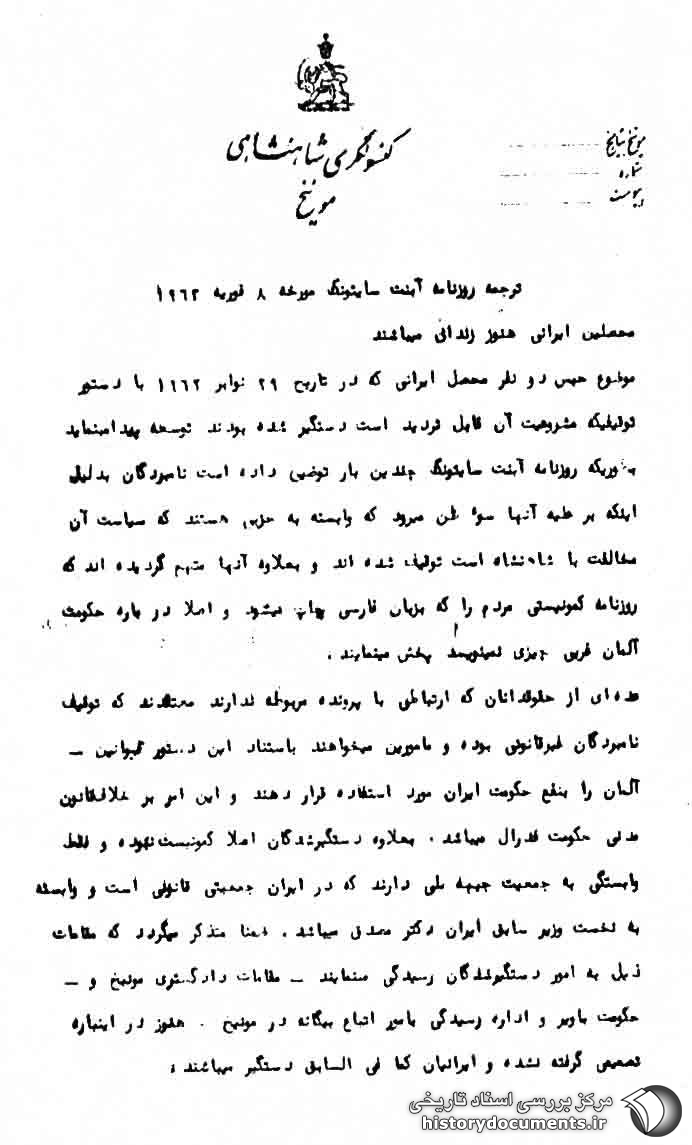 کنسولگری شاهنشاهی
مونیخ
مونیخ بتاریخ
شماره
پیوست
ترجمه روزنامه آبنت سایتونگ مورخه ۸ فوریه ۱۹۶۲
محصلین ایرانی هنوز زندانی میباشند
موضوع حبس دو نفر محصل ایرانی که در تاریخ ۲۹ نوامبر ۱۹۶۲ با دستور
توقیفیکه مشروعیت آن قابل تردید است دستگیر شده بودند توسعه پیدامینماید
بطوریکه روزنامه آبنت سایتونگ چندین بار توضیح داده است نامبردگان بدلیل
اینکه بر علیه آنها سوء ظن میرود که وابسته به حزبی هستند که سیاست آن
مخالفت با شاهنشاه است توقیف شده اند و بعلاوه آنها متهم گردیده اند که
روزنامه کمونیستی مردم را که بزبان فارسی چاپ میشود و اصلا در باره حکومت
آلمان غربی چیزی نمینویسد پخش مینمایند .
عده‌ای از حقوقدانان که ارتباطی با پرونده مربوطه ندارند معتقدند که توقیف
نامبردگان غیرقانونی بوده و مامورین میخواهند باستناد این دستور قوانین –
آلمان را بنفع حکومت ایران مورد استفاده قرار دهند و این امر بر خلاف‌قانون
مدنی حکومت فدرال میباشد . بعلاوه دستگیرشدگان اصلا کمونیست‌نبوده و فقط
وابستگی به جمعیت جبهه ملی دارند که در ایران جمعیتی قانونی است و وابسته
به نخست وزیر سابق ایران دکتر مصدق میباشد . ضمنا متذکر میگردد که مقامات
ذیل به امور دستگیرشدگان رسیدگی مینمایند – مقامات دادگستری مونیخ و –
حکومت باویر و اداره رسیدگی بامور اتباع بیگانه در مونیخ . هنوز در اینباره
تصمیمی گرفته نشده و ایرانیان کما فی السابق دستگیر میباشند .
مرکز بررسی اسناد تاریخی
historydocuments.ir